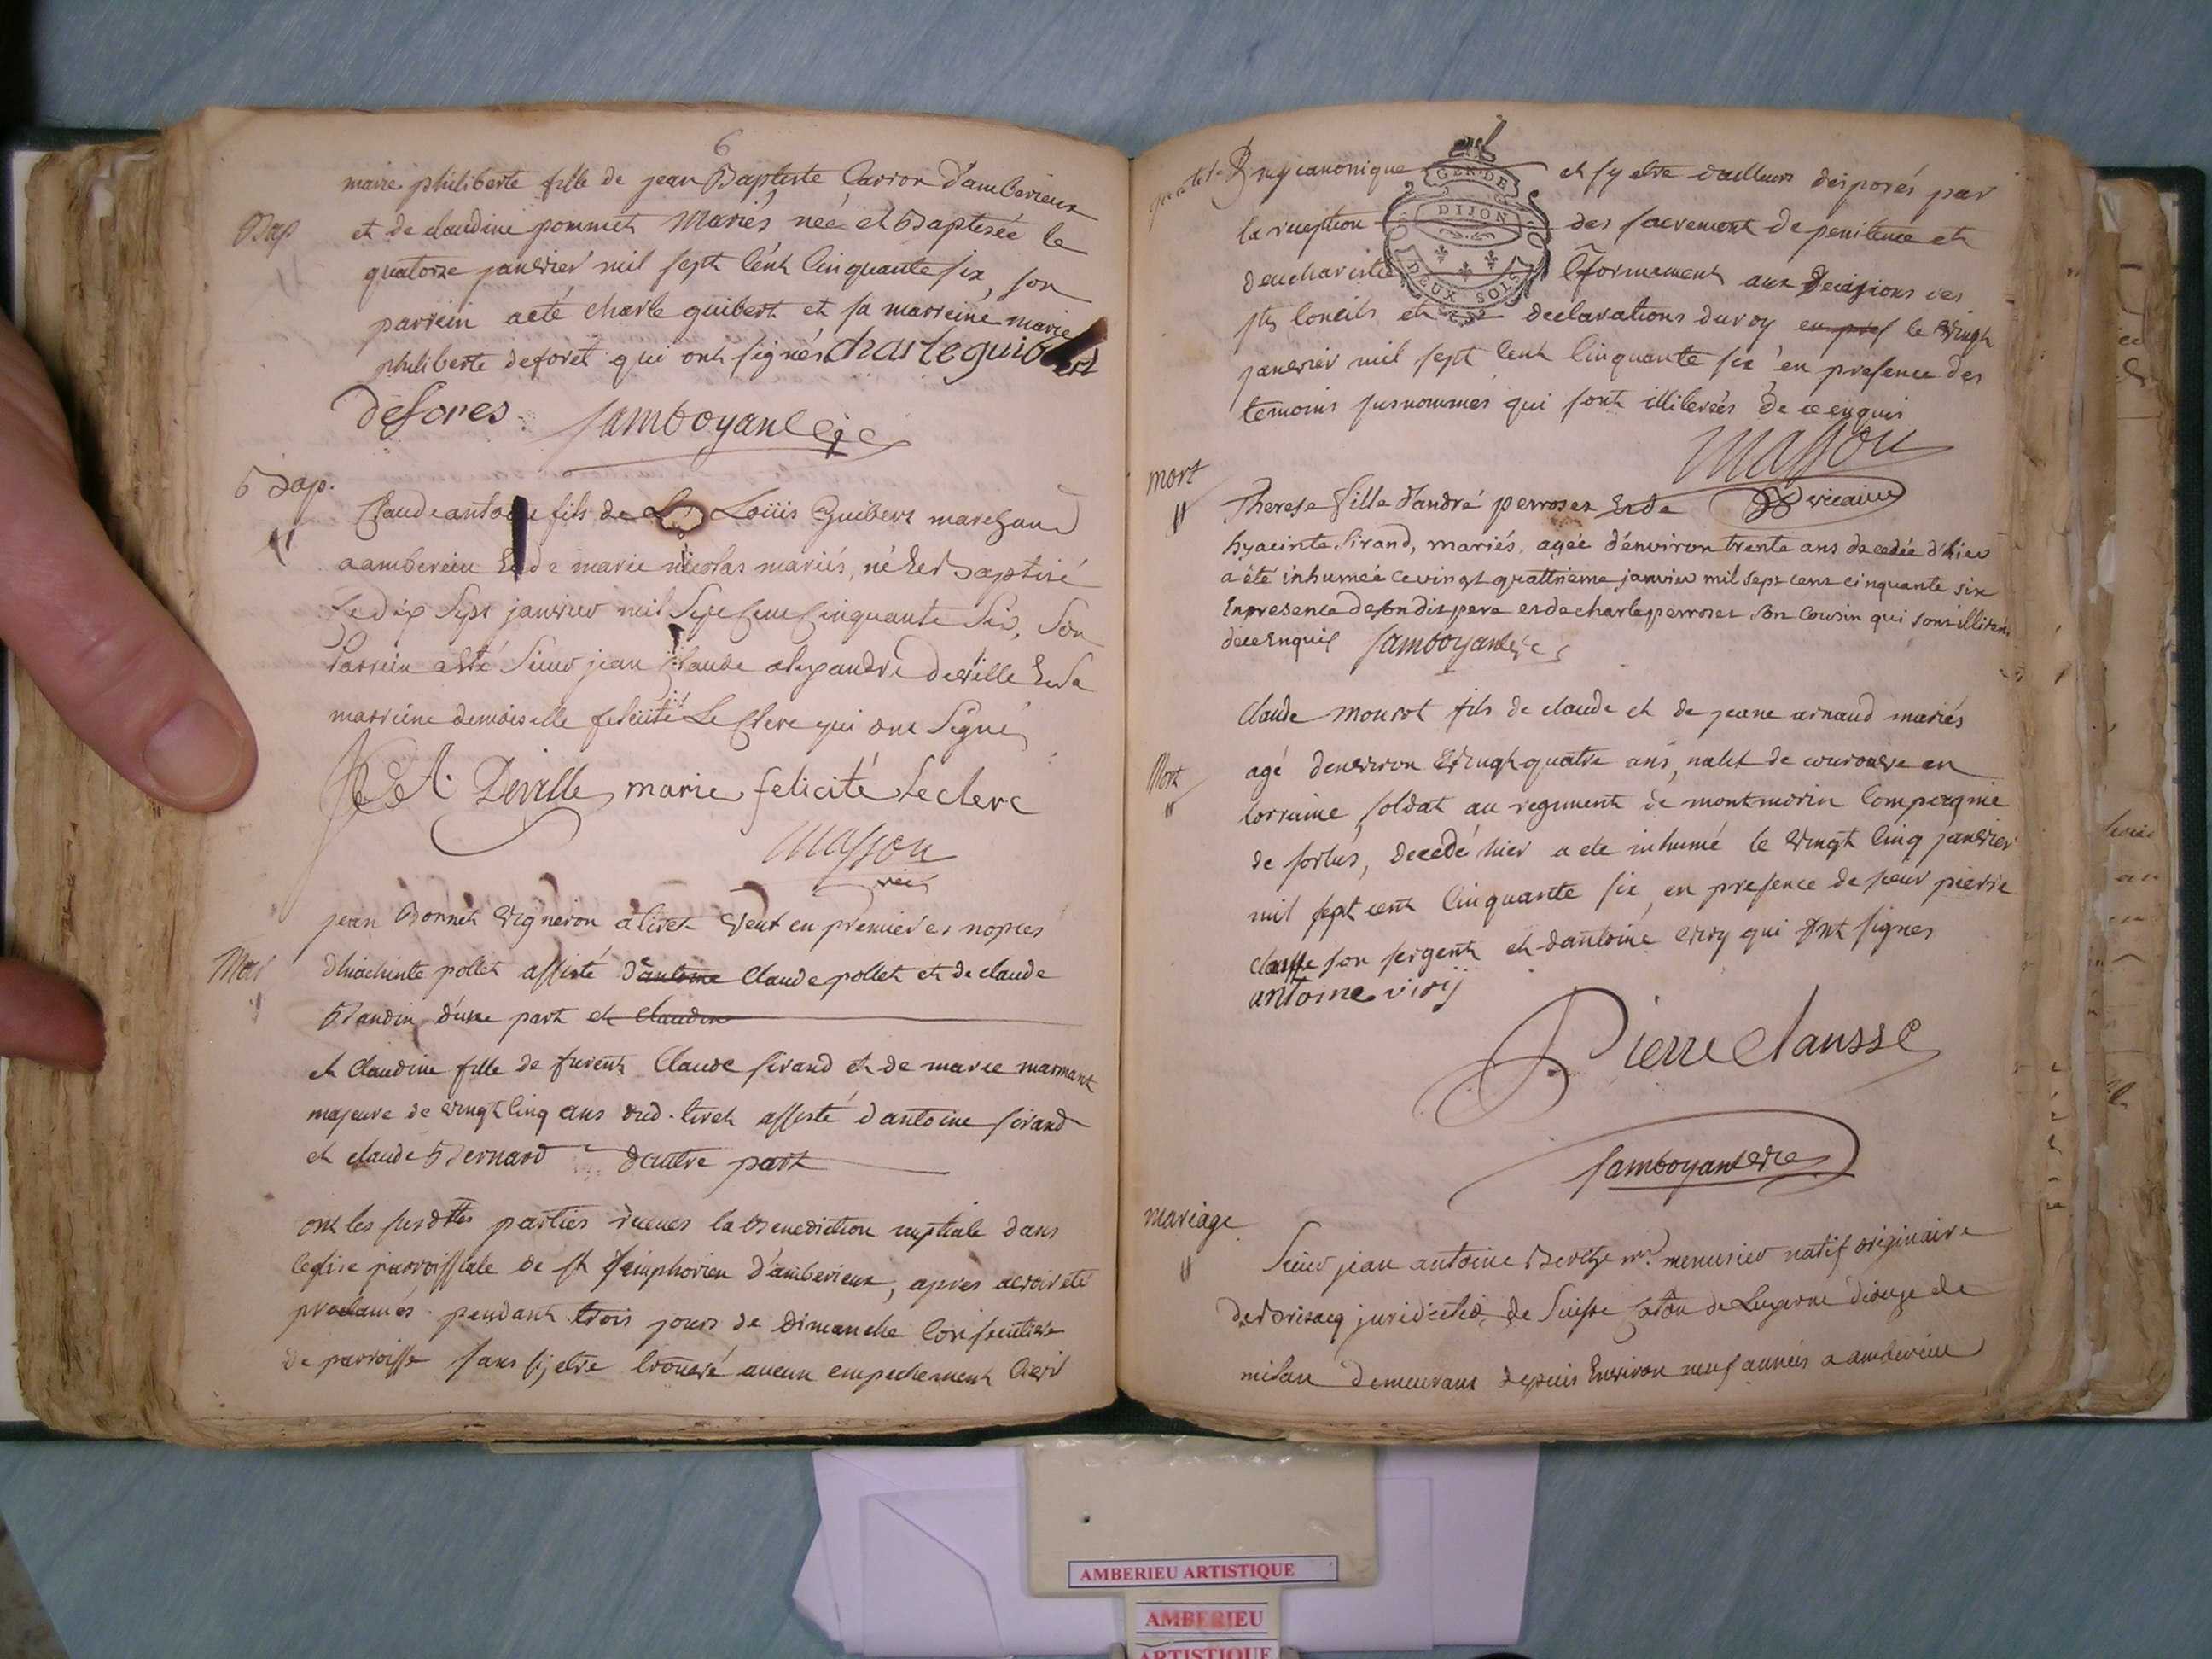 6
marie philiberte fille de jean Baptiste Carron d'amberieux
Bap
et de claudine pommet Mariés née et Baptisée le
quatorze janvier mil sept Cent Cinquante six, son
parrein a eté charle guibert et sa marreine marie
philiberte deforet qui ont signés charle guibert
defores Jamboyant vic
Bap.
Claude antoine fils de Sr Loüis Guibert marchand
a amberieu Et de marie nicolas mariés, né Et Baptisé
Le dix Sept janvier mil Sept Cent Cinquante Six, Son
Parrein a Eté Sieur jean Claude alexandre deville Et Sa
marreine demoiselle felicité Le Clerc qui ont Signé
Deville marie felicité Leclerc
Masson
vic
jean Bonnet vigneron a tiret veuf en premieres nopces
Mar
d'hiachinte pollet assisté d'antoine Claude pollet et de claude
Blandin d'une part et claudine
et Claudine fille de furent Claude sirand et de marie marmant
majeure de vingt cinq ans dud. tiret assisté d'antoine sirand
et claude Bernard d'autre part
ont les susdttes parties receues la Benediction nuptiale dans
l'eglise parroissiale de st simphorien d'amberieux, apres avoir eté
proclamés pendant trois jours de dimanche Consecutive
de parroisse sans s'y etre trouvé aucun empechement Civil
ny canonique et s'y etre d'ailleurs disposés par
GEN DE
DIJON
DEUX SOLS
la reception des sacrement de penitence et
d'eucharistie Conformement aux Decisions des
sts Concils et declarations du roy en pres le vingt
janvier mil sept Cent Cinquante six en presence des
temoins susnommés qui sont illiterés de ce enquis
Masson
vicaire
mort
Therese fille d'andré perrozet Et de
hyacinte Sirand, mariés, agée d'environ trente ans decedée d'hier
a été inhumée ce vingt quattrieme janvier mil sept cent cinquante six
En presence de son dit pere et de charle perrozet son Cousin qui sont illiterés
de ce Enquis Jamboyant vic
Claude mourot fils de claude et de jeane arnaud mariés
Mort
agé d'environ vingt quatre ans, natif de en
lorraine soldat au regiment de montmorin Compagnie
de fortus, decedé hier a eté inhumé le vingt Cinq janvier
mil sept cent Cinquante six en presence de sieur pierre
clausse son sergent et d'antoine viry qui ont signes
antoine virij
Pierre Clausse
Jamboyant vic
mariage
Sieur jean antoine menusier natif originaire
de juridiction de Suisse Caton de Lugarne dioceze de
milan demeurant depuis Environ neuf années a amberieu
AMBERIEU ARTISTIQUE
AMBERIEU
ARTISTIQUE